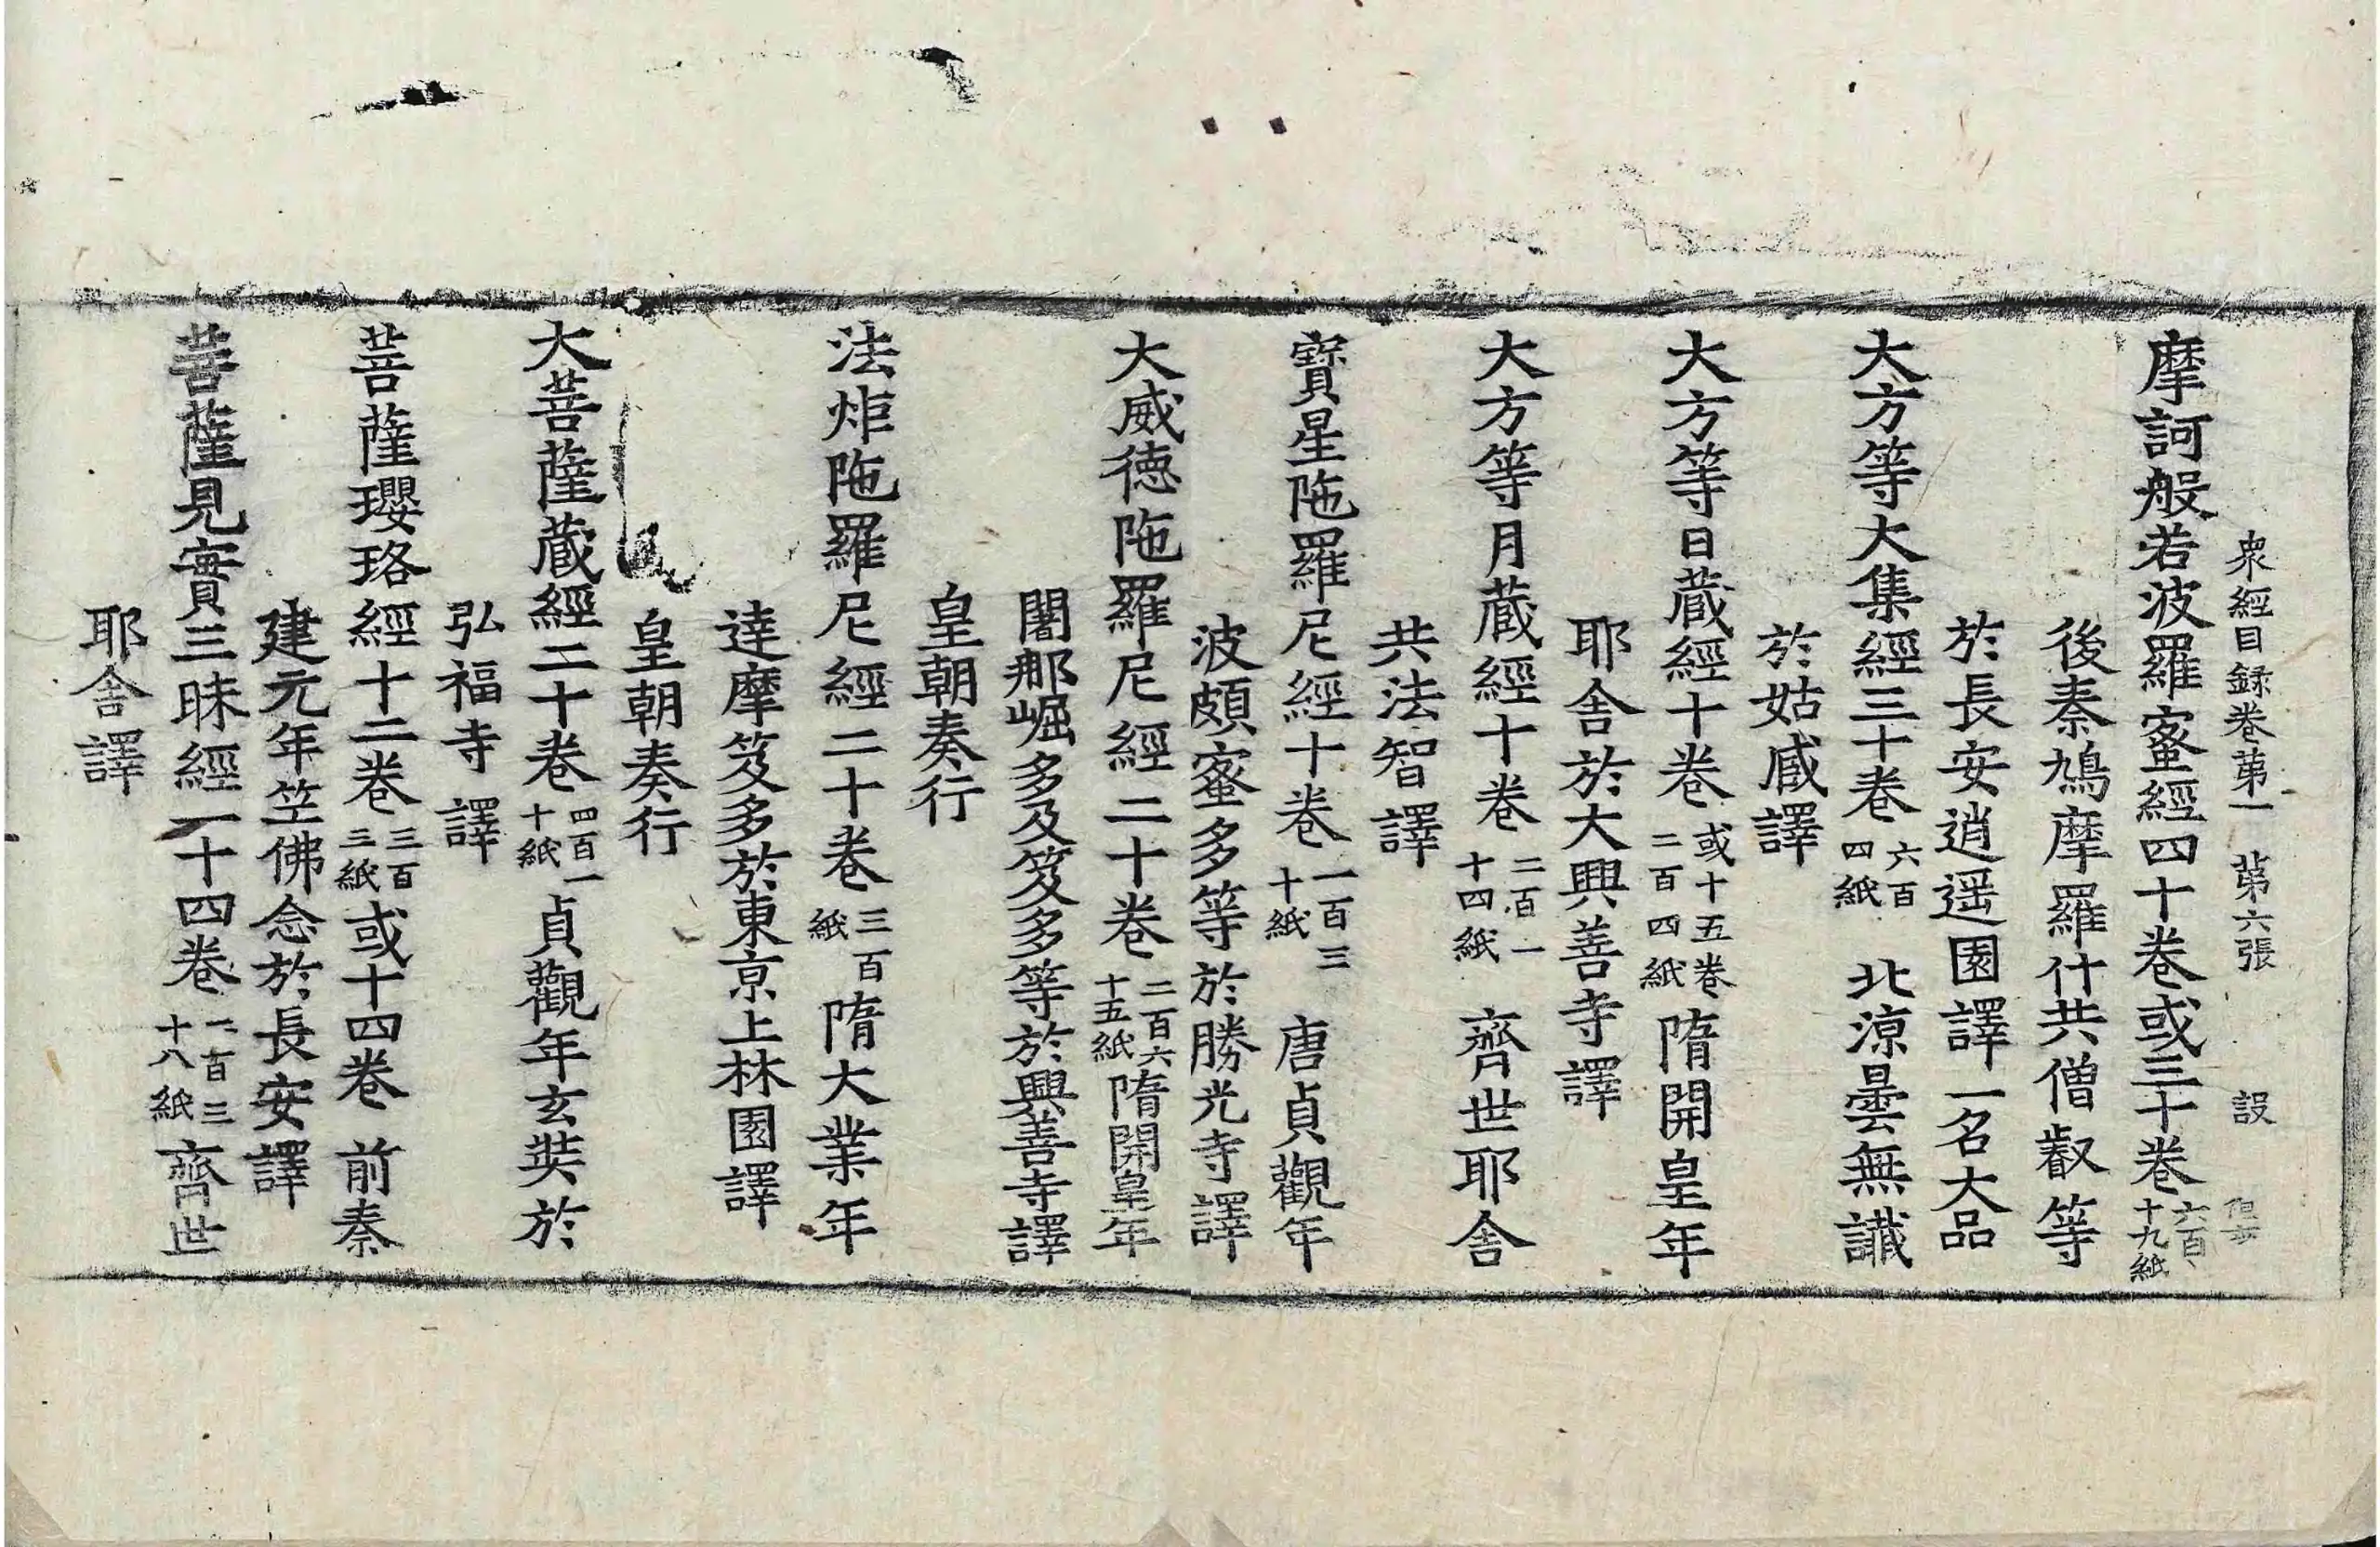 衆經目録卷第一 第六張 設
摩訶般若波羅蜜經四十卷或三十卷六百十九紙
後秦鳩摩羅什共僧叡等
於長安逍遥園譯一名大品
大方等大集經三十卷六百四紙 北涼曇無讖
於姑臧譯
大方等日蔵經十卷或十五卷二百四紙隋開皇年
耶舎於大興善寺譯
大方等月蔵經十卷二百一十四紙 齊世耶舎
共法智譯
寶星陁羅尼經十卷一百三十紙 唐貞觀年
波頗蜜多等於勝光寺譯
大威徳陁羅尼經二十卷二百六十五紙隋開皇年
闍那崛多及笈多等於興善寺譯
皇朝奏行
法炬陁羅尼經二十卷三百紙 隋大業年
達摩笈多於東京上林園譯
皇朝奏行
大菩薩蔵經二十卷四百一十紙貞觀年玄奘於
弘福寺譯
菩薩瓔珞經十二卷三百三紙或十四卷 前秦
建元年竺佛念於長安譯
菩薩見實三昧經一十四卷一百三十八紙齊世
耶舎譯